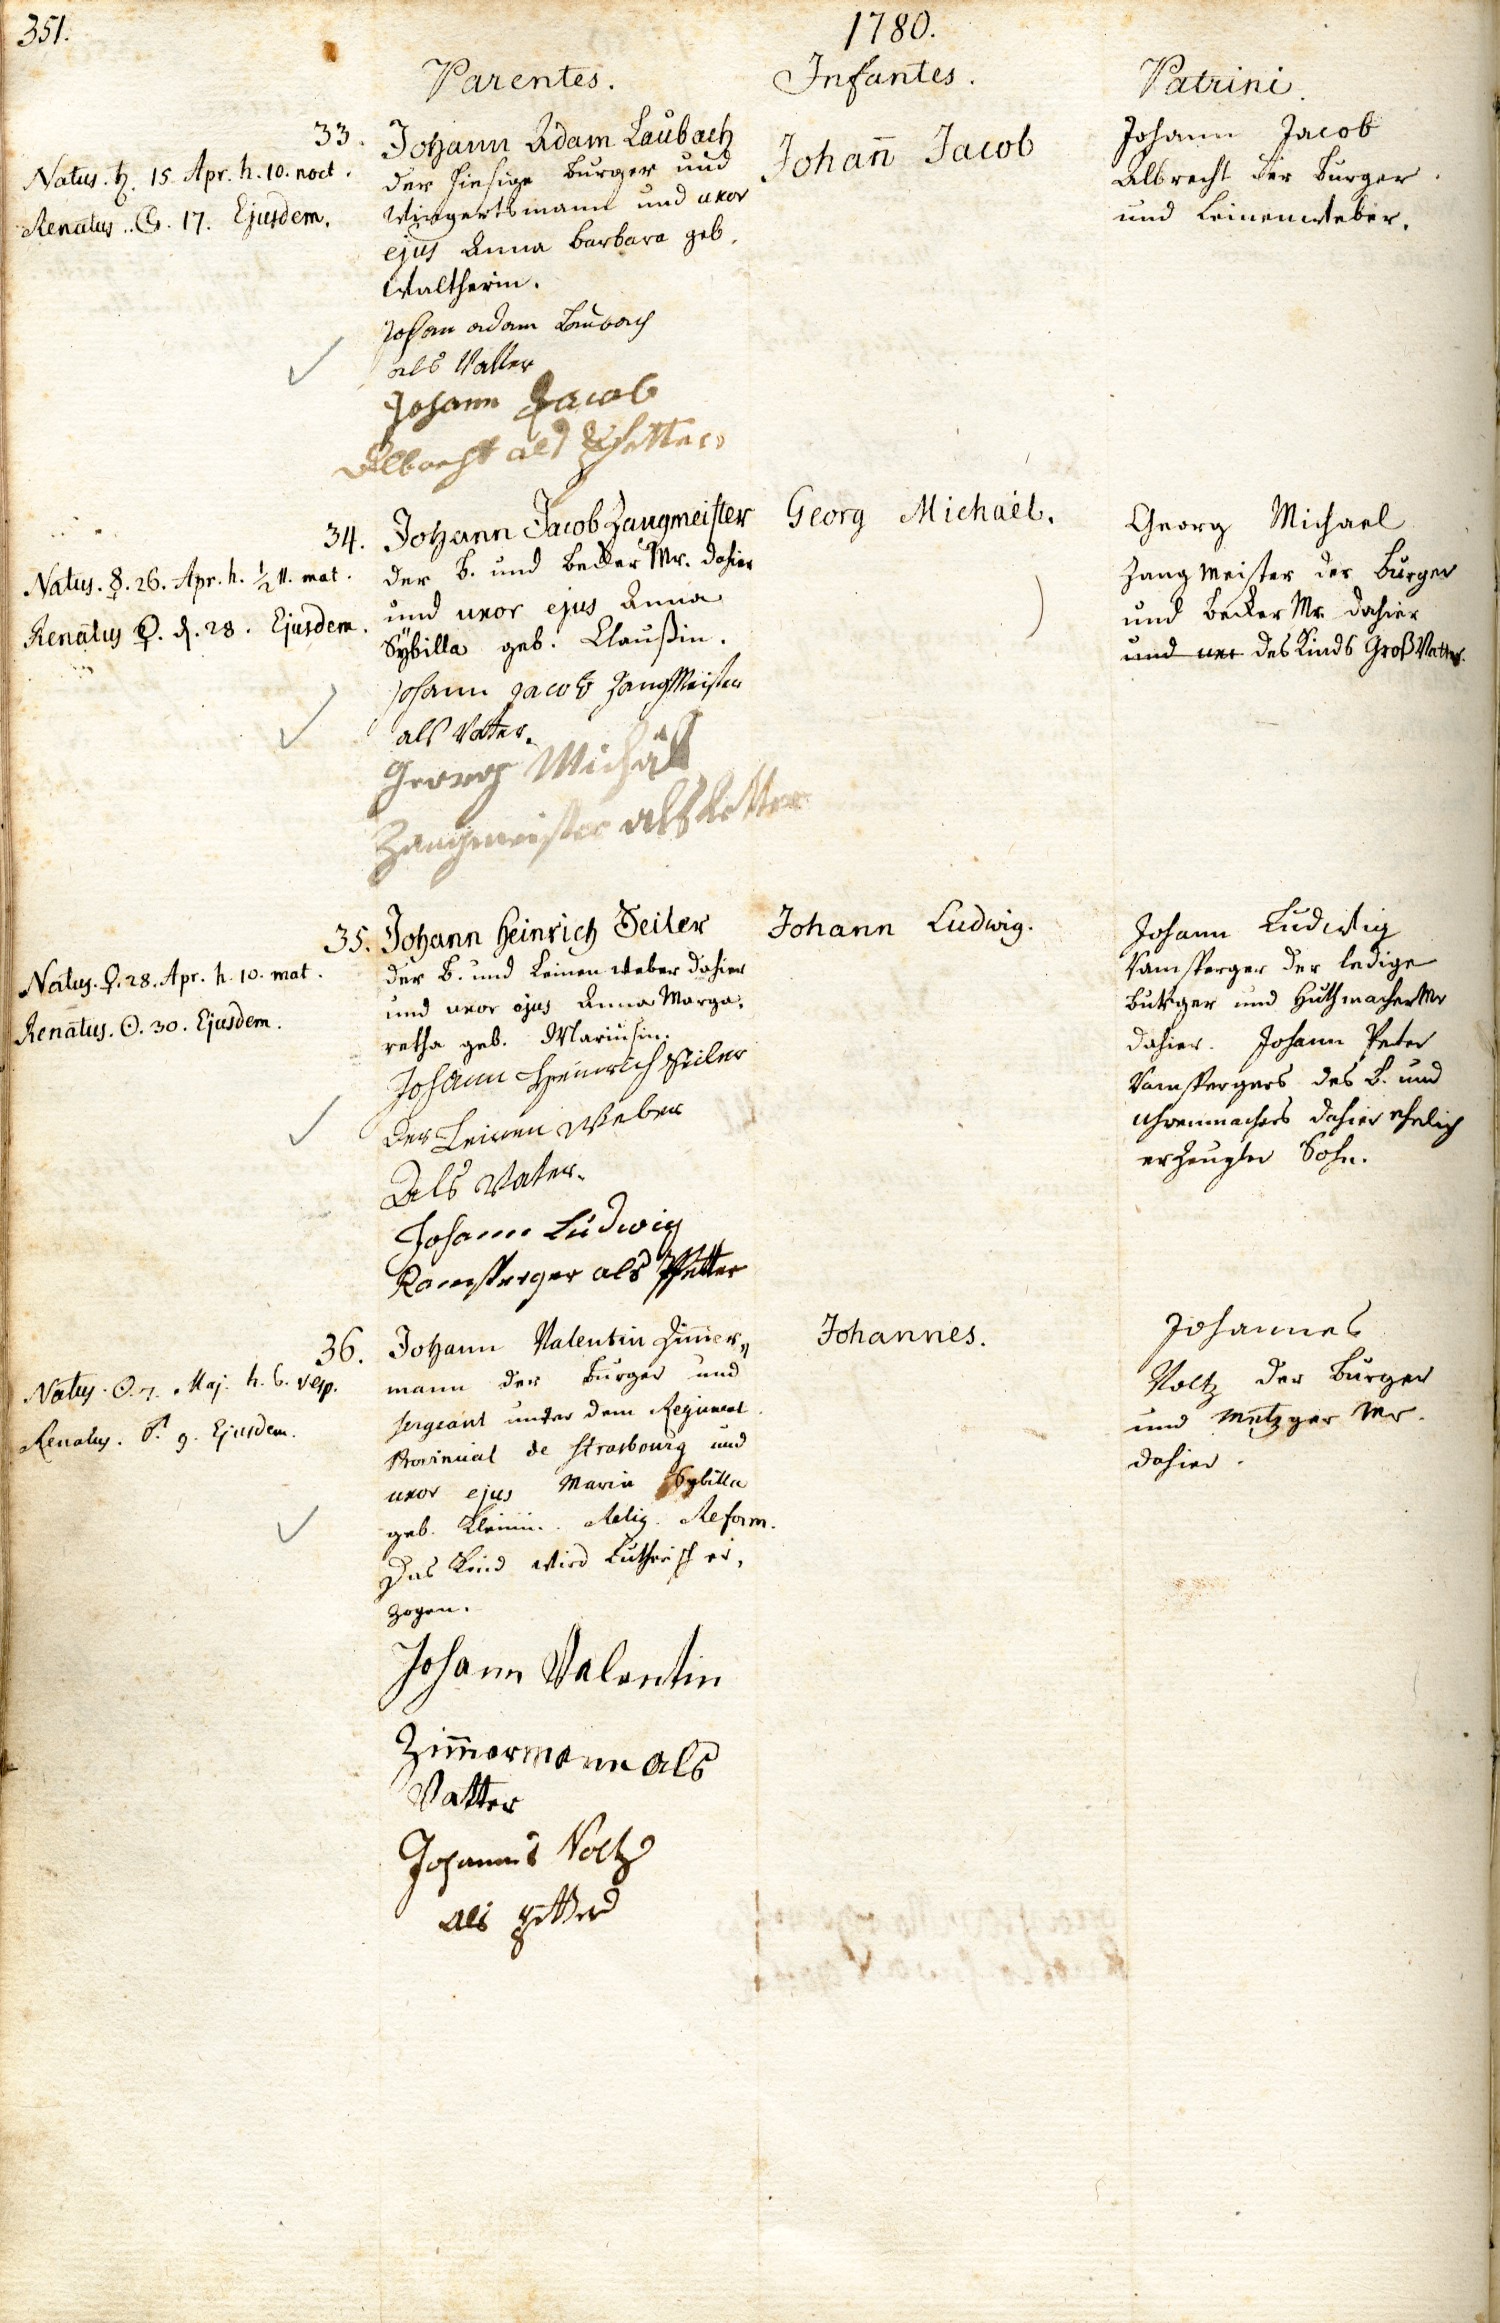 351.
1780.
Parentes.
Infantes.
Patrini.
33.
Natus. ♄. 15 Apr. h. 10. noct.
Renatus. ☾. 17. Ejusdem.
Johann Adam Laubach
der hiesige burger und
Wingertsmann und uxor
ejus Anna barbara geb.
Waltherin.
Johan adam Laubach
als Vatter
Johann Jacob
Albrecht als Pfetter
Johan̄ Jacob
Johann Jacob
Albrecht der burger
und Leinenweber.
34.
Natus. ☿. 26. Apr. h. ½ 11. mat.
Renatus ♀. d. 28. Ejusdem.
Johann Jacob Zangmeister
der b. und becker Mr. dahier
und uxor ejus Anna
Sÿbilla geb. Claußin.
Johann Jacob Zangmeister
als Vatter.
Georg Michäl
Zangmeister als Petter
Georg Michaël.
Georg Michael
Zangmeister der burger
und becker Mr. dahier
und des Kinds Groß Vatter.
35.
Natus. ♀. 28. Apr. h. 10. mat.
Renatus. ☉. 30. Ejusdem.
Johann Heinrich Seiler
der b. und Leinen weber dahier
und uxor ejus Anna Marga-
retha geb. Mariusin.
Johann Heinrich Seiler
der Leinen Weber
Als Vater.
Johann Ludwig
Ramsperger als Pfetter
Johann Ludwig.
Johann Ludwig
Ramsperger der ledige
burger und Huthmacher Mr
dahier. Johann Peter
Ramspergers des b. und
uhrenmachers dahier ehelich
erzeugter Sohn.
36.
Natus. ☉ 7. Maj. h. 6. vesp.
Renatus. ♂. 9. Ejusdem.
Johann Valentin Zim̄er„
mann der burger und
sergeant unter dem Regiment
Provincial de Strasbourg und
uxor ejus Maria Sybilla
geb. Kleinin. Relig. Reform.
Das Kind wird Lutherisch er-
zogen.
Johann Valentin
Zim̄ermann als
Vatter
Johannes Voltz
als Petter
Johannes.
Johannes
Voltz der burger
und Metzger Mr.
dahier.